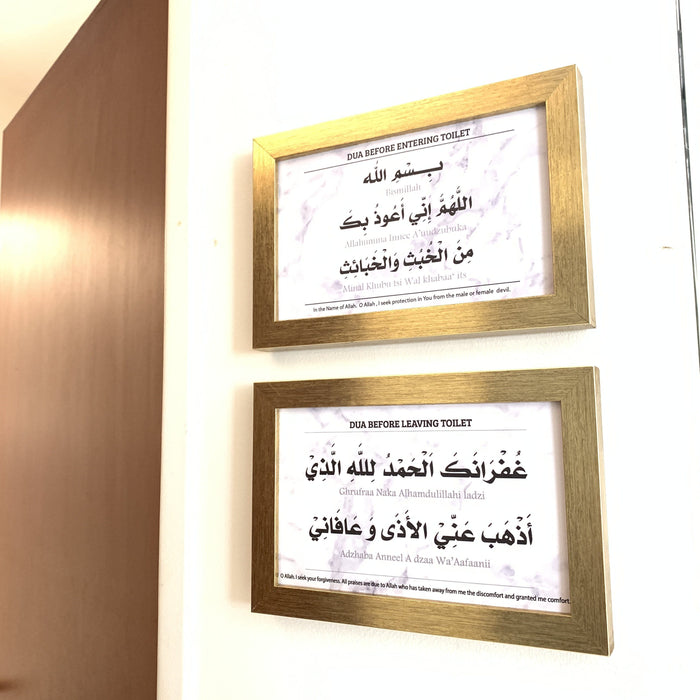 DUA BEFORE ENTERING TOILET
بِسْمِ اللّٰه
Bismillah
اللَّهُمُّ إِنِّي أَعُوذُ بِكَ
Allahumma Innee A'uudzubuka
مِنَ الْخُبُثِ وَالْخَبَائِثِ
Minal Khubu Isi Wal khabaa' its
In the Name of Allah. O Allah, I seek protection in You from the male or female devil.
DUA BEFORE LEAVING TOILET
غُفْرَانَكَ اَلْحَمْدُ لِلَّهِ الَّذِيْ
Ghrufraa Naka Alhamdulillahi ladzi
أَذْهَبَ عَنِّيْ الأَذَى وَ عَافَانِيْ
Adzhaba Anneel A dzaa Wa'Aafaanii
O Allah. I seek your forgiveness. All praises are due to Allah who has taken away from me the discomfort and granted me comfort.